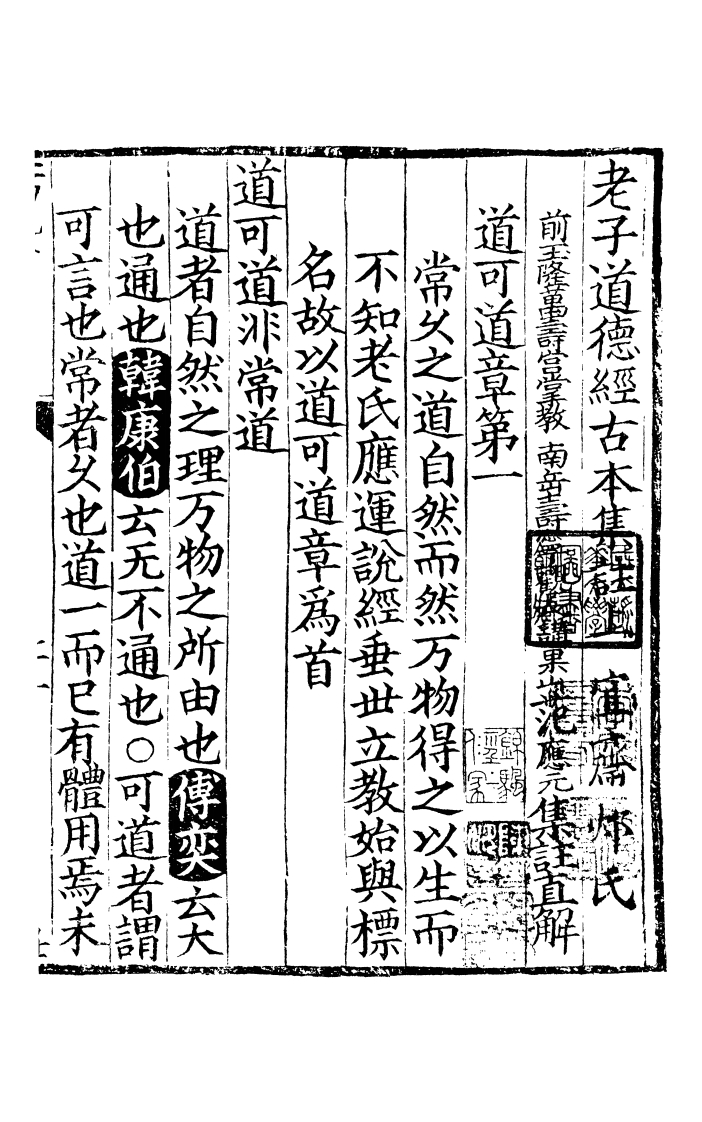 老子道德經古本集註上
前玉隆萬壽宮掌教 南岳壽寧 果山范應元集註直解
道可道章第一
常久之道自然而然万物得之以生而
不知老氏應運說經垂世立教始與標
名故以道可道章爲首
道可道非常道
道者自然之理万物之所由也傅奕云大
也通也韓康伯云无不通也○可道者謂
可言也常者久也道一而已有體用焉未